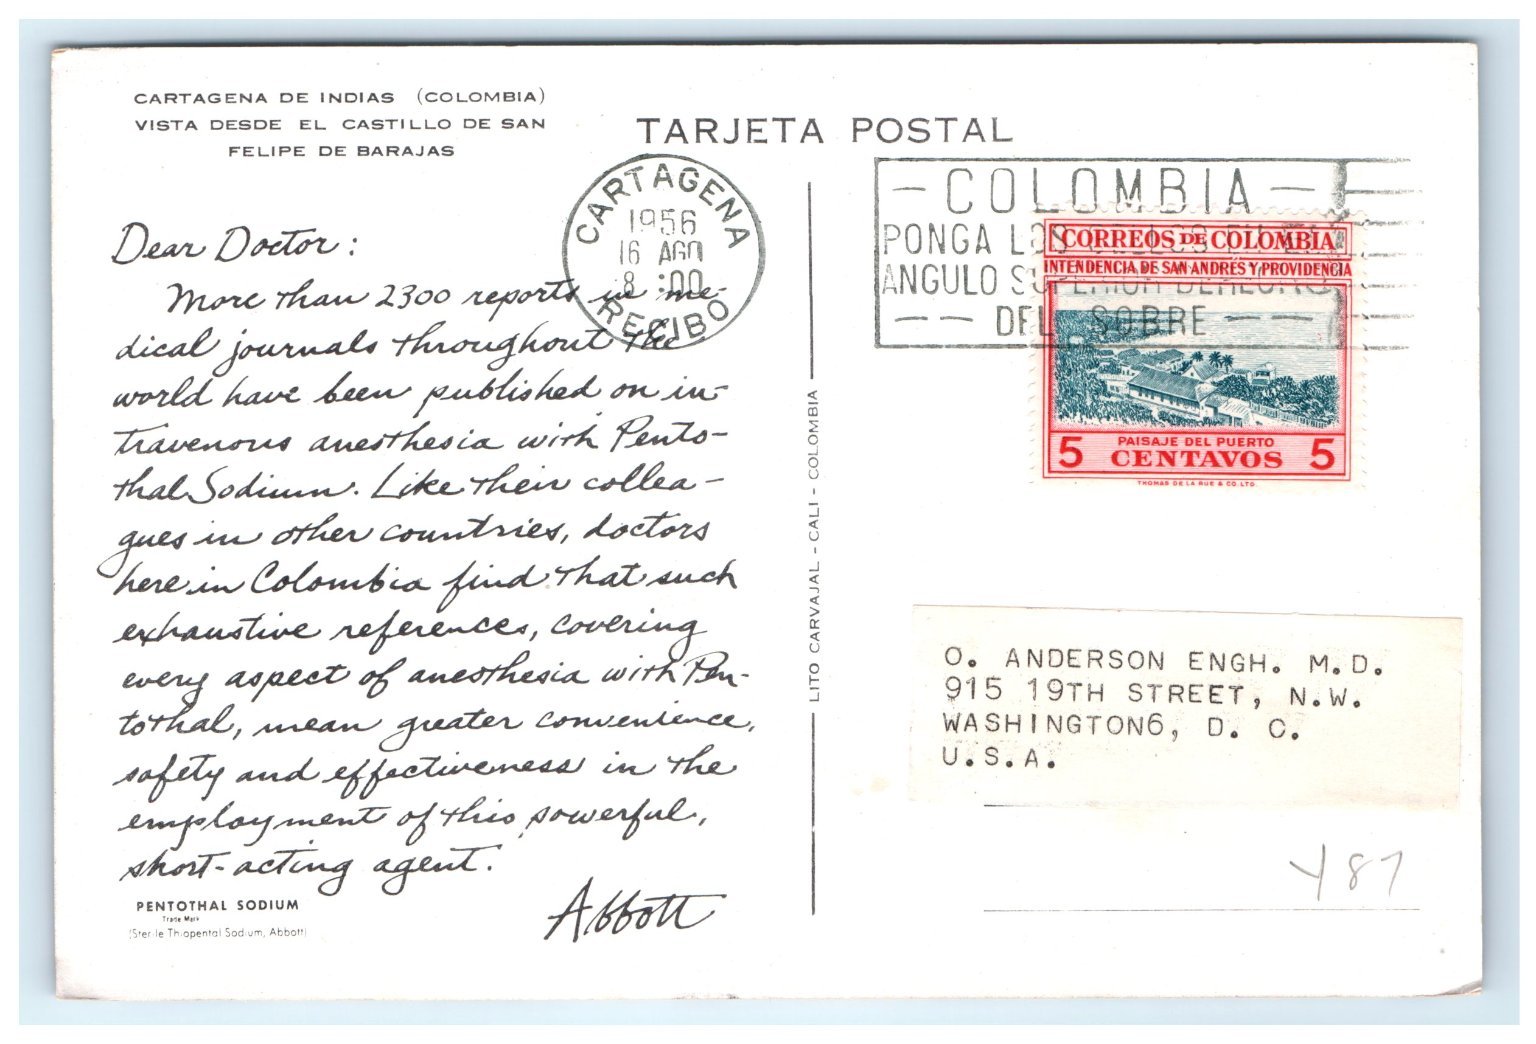 CARTAGENA DE INDIAS (COLOMBIA)
VISTA DESDE EL CASTILLO DE SAN
FELIPE DE BARAJAS
TARJETA POSTAL
CARTAGENA
1956
16 AGO
8:00
RECIBO
- COLOMBIA -
PONGA LOS SELLOS EN EL
ANGULO SUPERIOR DERECHO
-- DEL SOBRE --
CORREOS DE COLOMBIA
INTENDENCIA DE SAN ANDRÉS Y PROVIDENCIA
PAISAJE DEL PUERTO
5 CENTAVOS 5
THOMAS DE LA RUE & CO. LTD.
Dear Doctor:
More than 2300 reports in me-
dical journals throughout the
world have been published on in-
travenous anesthesia with Pento-
thal Sodium. Like their collea-
gues in other countries, doctors
here in Colombia find that such
exhaustive references, covering
every aspect of anesthesia with Pen-
tothal, mean greater convenience,
safety and effectiveness in the
employment of this powerful,
short-acting agent.
Abbott
PENTOTHAL SODIUM
Trade Mark
(Sterile Thiopental Sodium, Abbott)
LITO CARVAJAL - CALI - COLOMBIA
O. ANDERSON ENGH. M.D.
915 19TH STREET, N.W.
WASHINGTON6, D. C.
U.S.A.
Y87